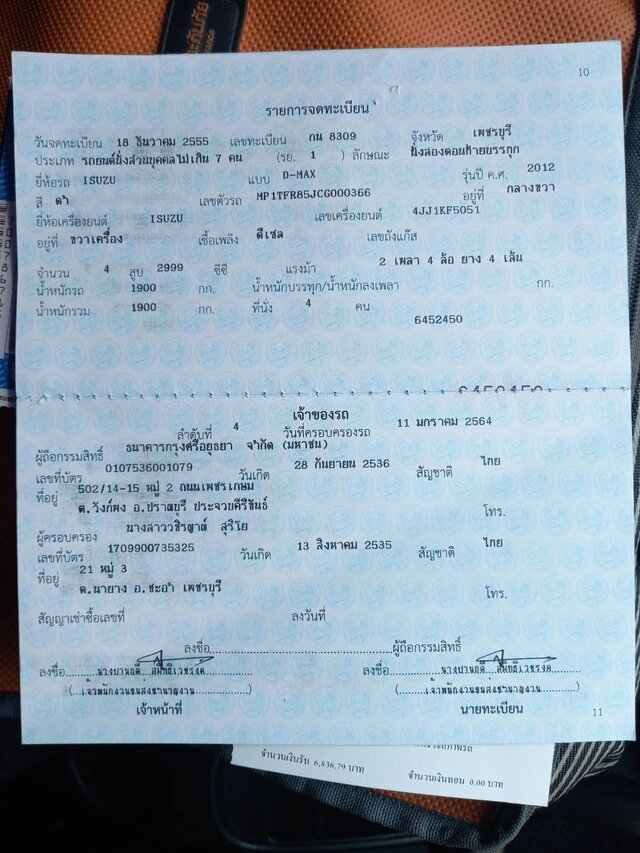 10
รายการจดทะเบียน
วันจดทะเบียน 18 ธันวาคม 2555 เลขทะเบียน กน 8309 จังหวัด เพชรบุรี
ประเภท รถยนต์นั่งส่วนบุคคลไม่เกิน 7 คน (รย. 1 ) ลักษณะ นั่งสองตอนท้ายบรรทุก
ยี่ห้อรถ ISUZU แบบ D-MAX รุ่นปี ค.ศ. 2012
สี ดำ เลขตัวรถ MP1TFR85JCG000366 อยู่ที่ กลางขวา
ยี่ห้อเครื่องยนต์ ISUZU เลขเครื่องยนต์ 4JJ1KF5051
อยู่ที่ ขวาเครื่อง เชื้อเพลิง ดีเซล เลขถังแก๊ส
จำนวน 4 สูบ 2999 ซีซี แรงม้า 2 เพลา 4 ล้อ ยาง 4 เส้น
น้ำหนักรถ 1900 กก. น้ำหนักบรรทุก/น้ำหนักลงเพลา กก.
น้ำหนักรวม 1900 กก. ที่นั่ง 4 คน
6452450
เจ้าของรถ
ลำดับที่ 4 วันที่ครอบครองรถ 11 มกราคม 2564
ผู้ถือกรรมสิทธิ์ ธนาคารกรุงศรีอยุธยา จำกัด (มหาชน)
เลขที่บัตร 0107536001079 วันเกิด 28 กันยายน 2536 สัญชาติ ไทย
ที่อยู่ 502/14-15 หมู่ 2 ถนนเพชรเกษม
ต.วังก์พง อ.ปราณบุรี ประจวบคีรีขันธ์ โทร.
ผู้ครอบครอง นางสาววชิรญาณ์ สุริโย
เลขที่บัตร 1709900735325 วันเกิด 13 สิงหาคม 2535 สัญชาติ ไทย
ที่อยู่ 21 หมู่ 3
ต.นายาง อ.ชะอำ เพชรบุรี โทร.
สัญญาเช่าซื้อเลขที่ ลงวันที่
ลงชื่อ ผู้ถือกรรมสิทธิ์
ลงชื่อ ลงชื่อ
(เจ้าพนักงานขนส่งชำนาญงาน) (เจ้าพนักงานขนส่งชำนาญงาน)
เจ้าหน้าที่ นายทะเบียน
11
จำนวนเงินรับ 6,836.79 บาท จำนวนเงินทอน 0.00 บาท